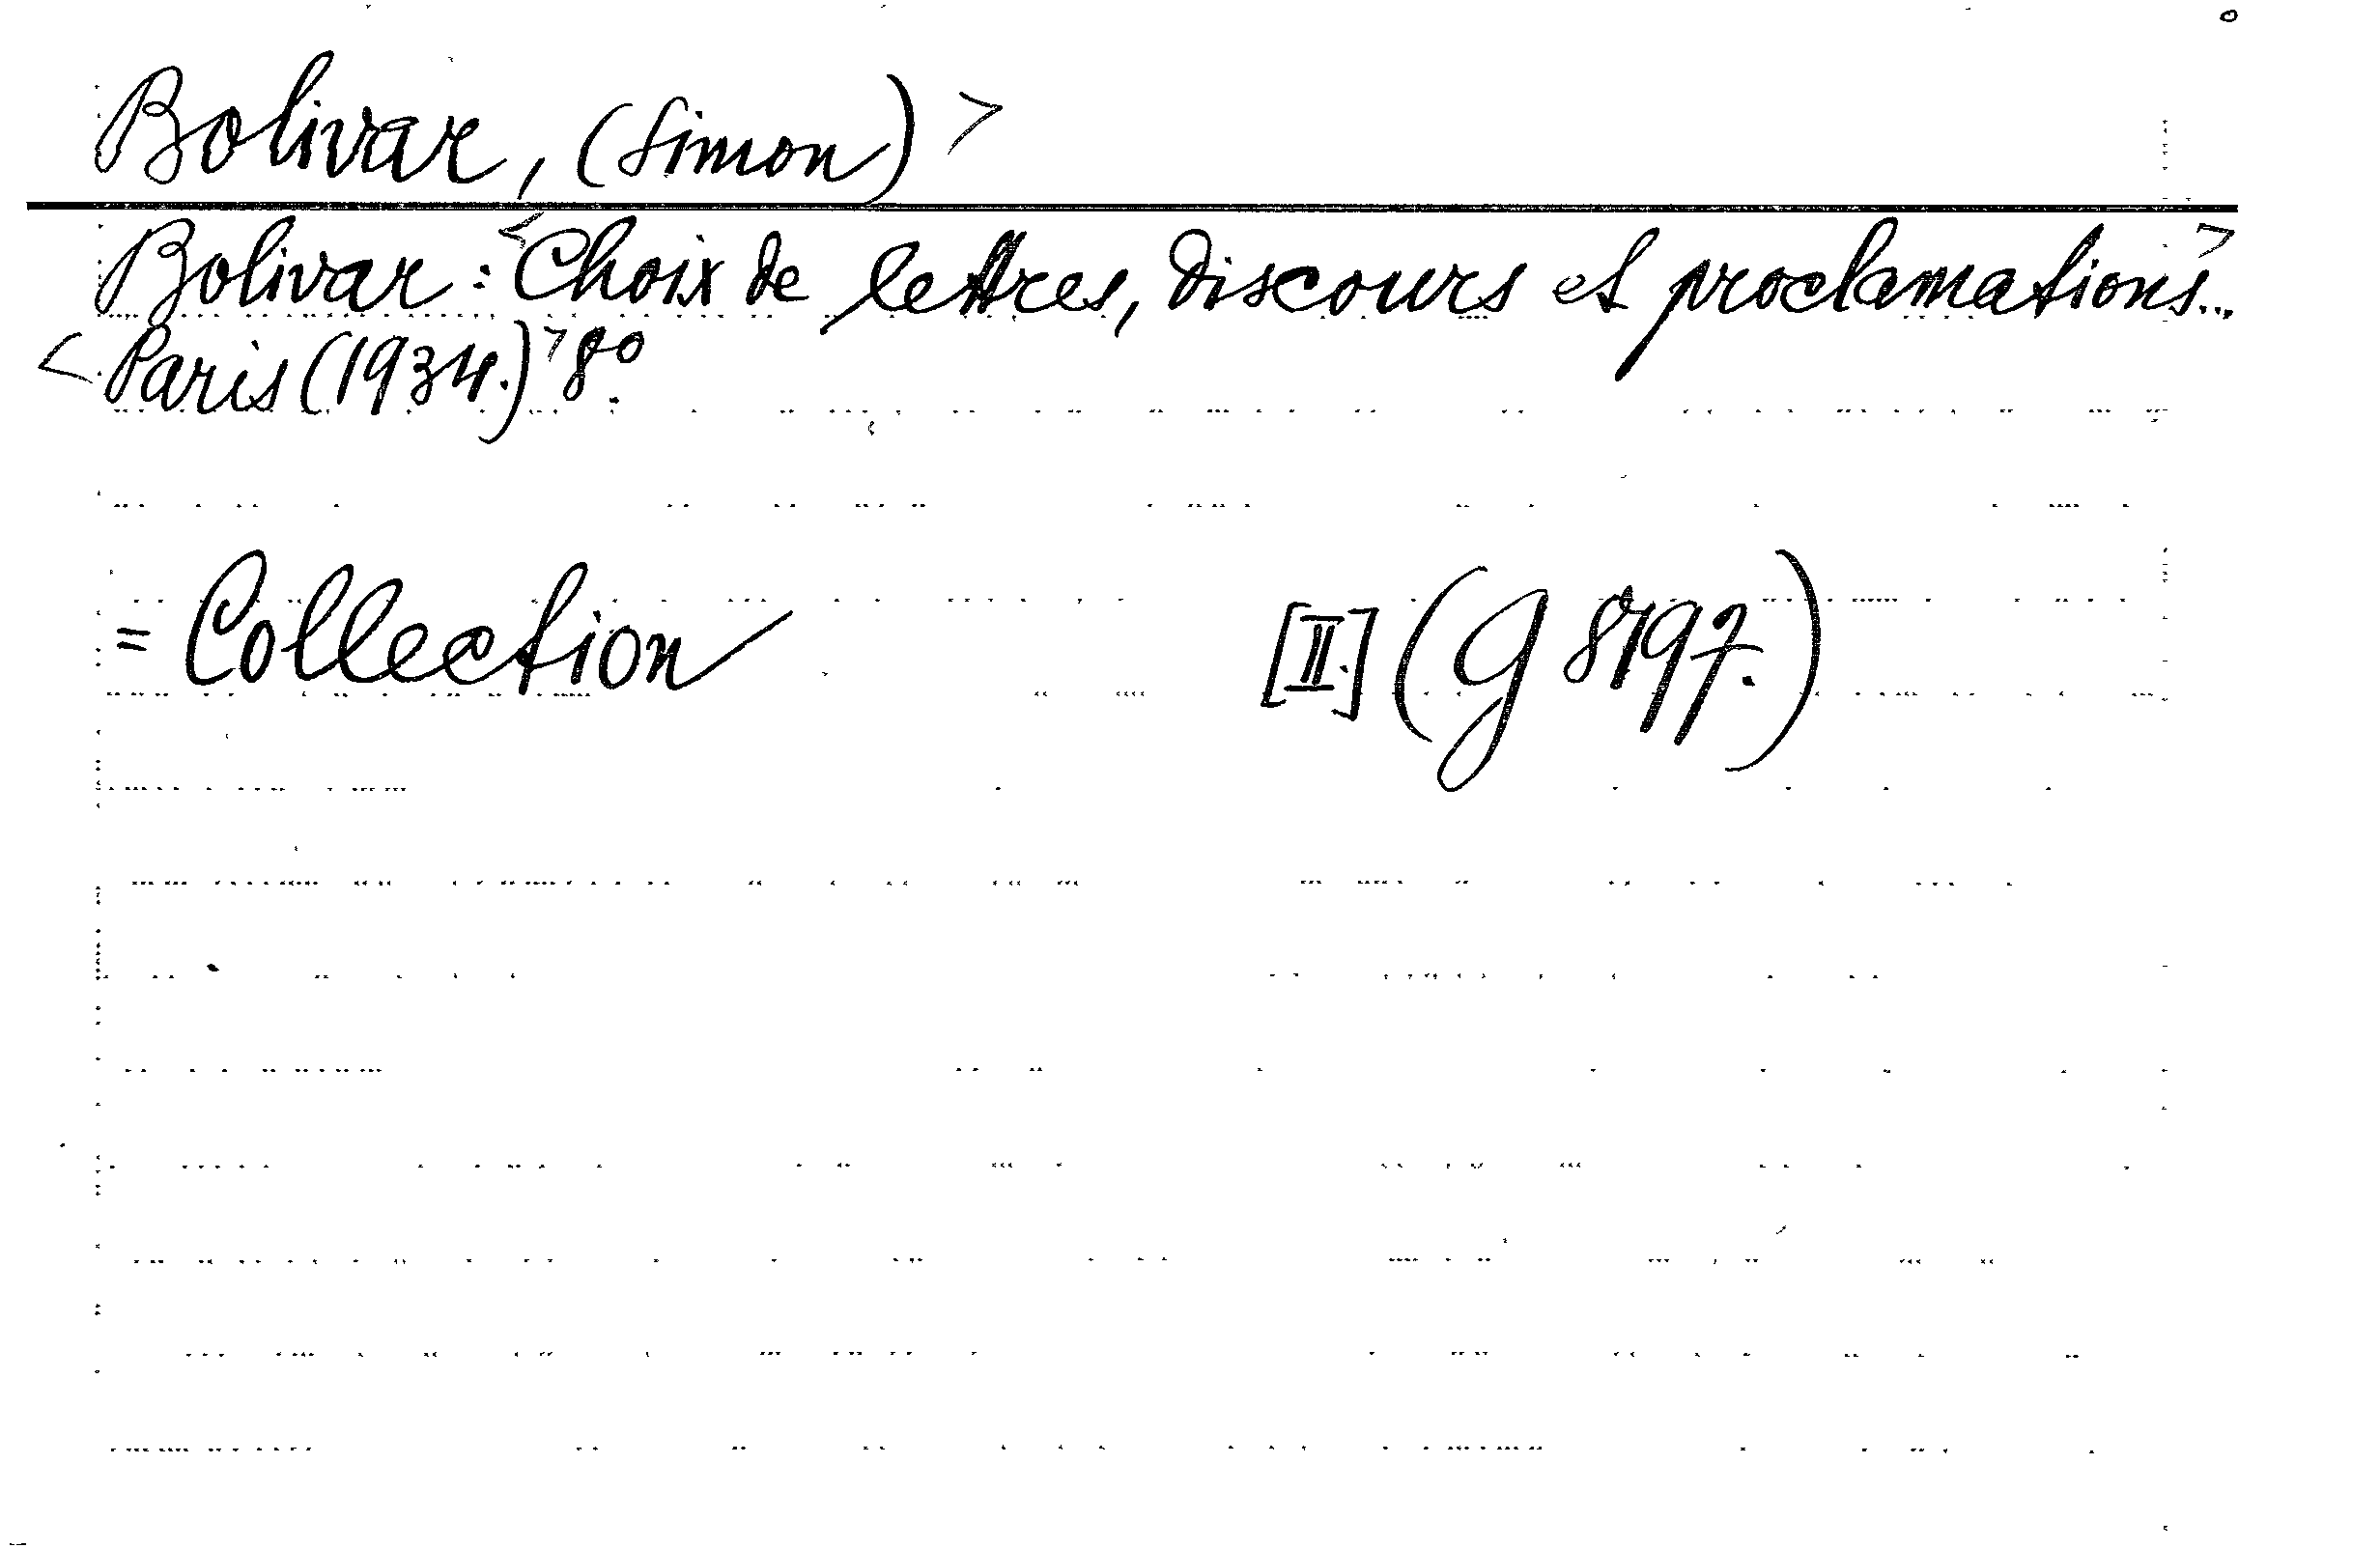 Bolivar, (Simon) >
Bolivar : <Choix de lettres, discours et proclamations... >
< Paris (1934.) > 8°.
= Collection [II.] (G 8797.)